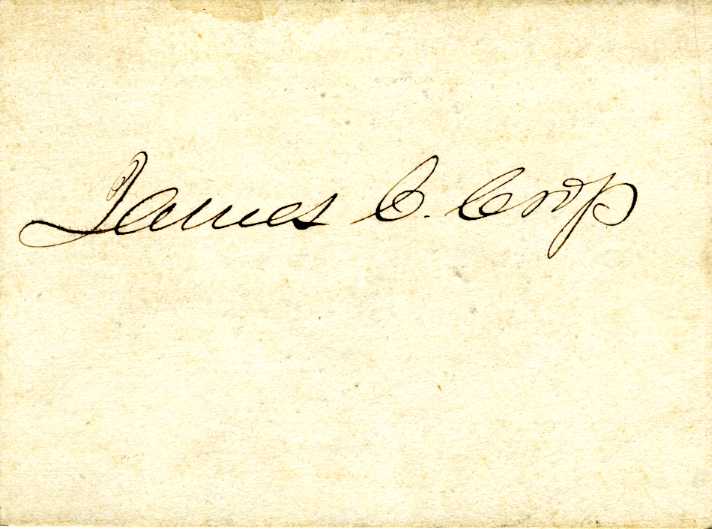 James C. Cross